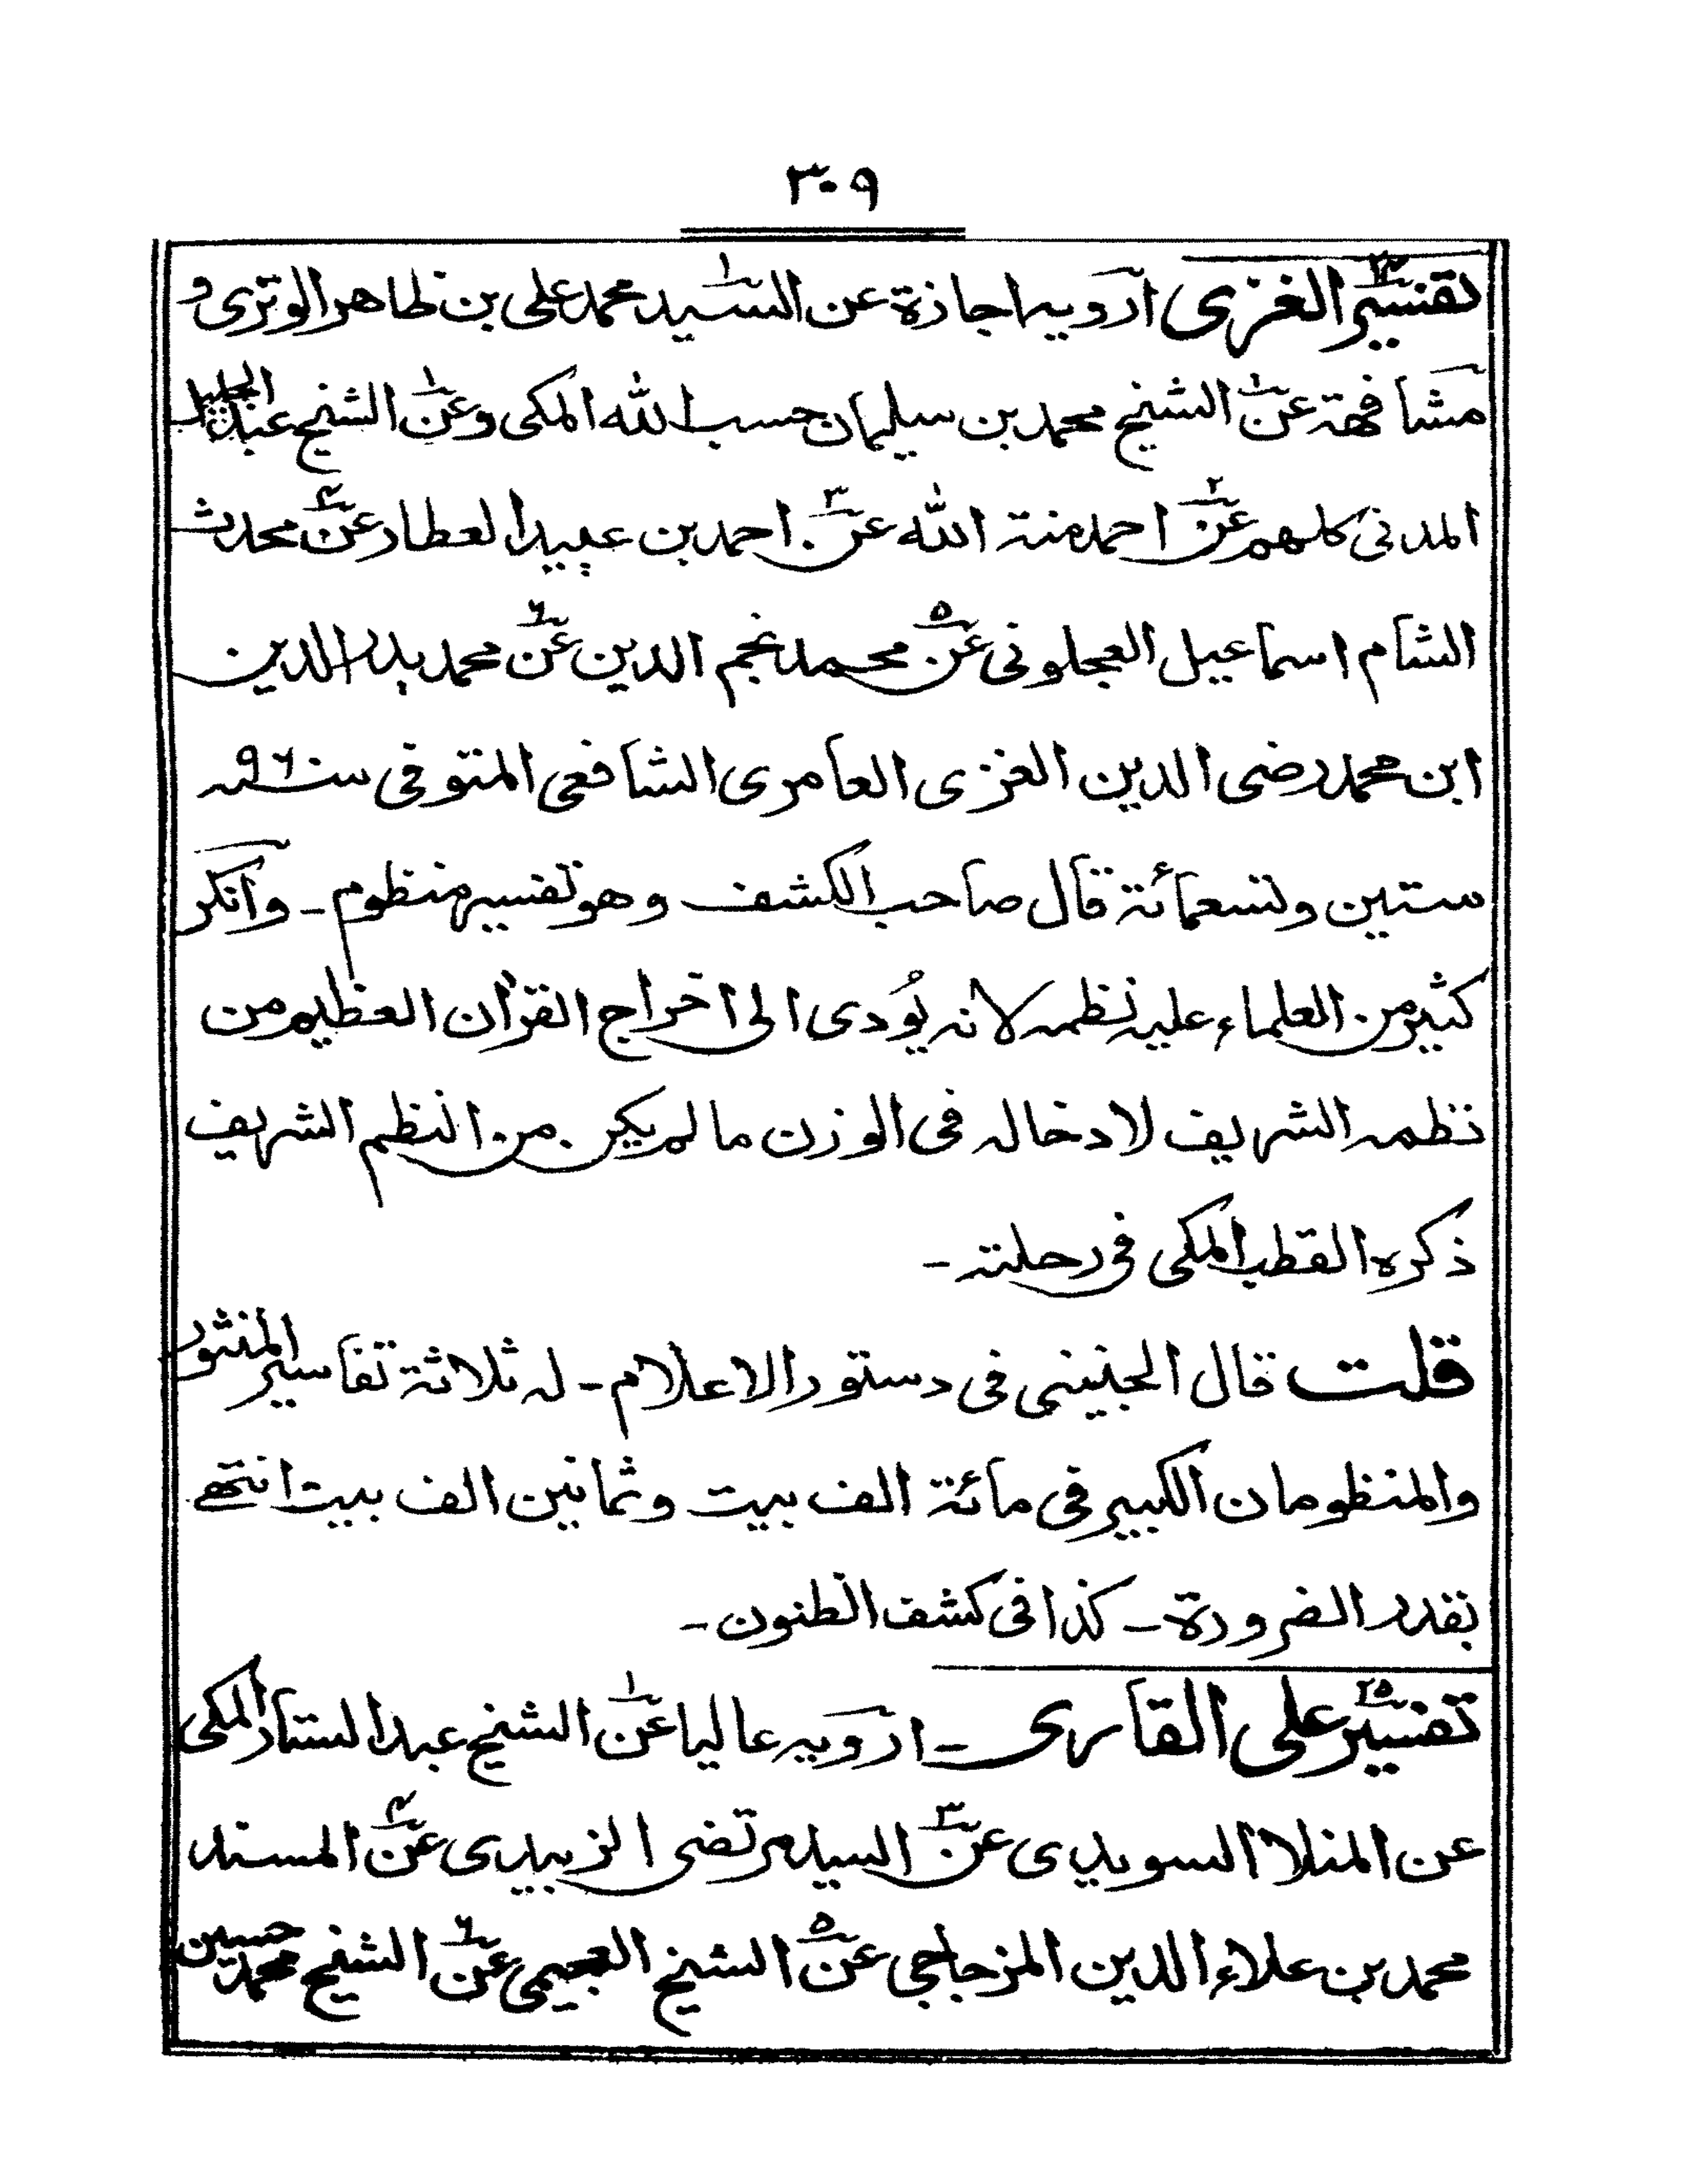 ٣٠٩
تفسير الغزى ارويه اجازة عن السيد محمد على بن ظاهر الوترى و
مشافهة عن الشيخ محمد بن سليمان حسب الله المكى وعن الشيخ عبد الجليل
المدنى كلهم عن احمد منة الله عن احمد بن عبيد العطار عن محدث
الشام اسماعيل العجلونى عن محمد نجم الدين عن محمد بدر الدين
ابن محمد رضى الدين الغزى العامرى الشافعى المتوفى سنه ٩٦
ستين وتسعمائة قال صاحب الكشف وهو تفسير منظوم ـ وانكر
كثير من العلماء عليه نظمه لانه يُودى الى اخراج القرآن العظيم من
نظمه الشريف لادخاله فى الوزن ما لم يكن من النظم الشريف
ذكره القطب المكى فى رحلته ـ
قلت قال الجنينى فى دستور الاعلام ـ له ثلاثة تفاسير المنثور
والمنظومان الكبير فى مائة الف بيت وثمانين الف بيت انتهى
بقدر الضرورة ـ كذا فى كشف الظنون ـ
تفسير على القارى ـ ارويه عاليا عن الشيخ عبد الستار المكى
عن المنلا السويدى عن السيد مرتضى الزبيدى عن المسند
محمد بن علاء الدين المزجاجى عن الشيخ العجيمى عن الشيخ محمد حسين